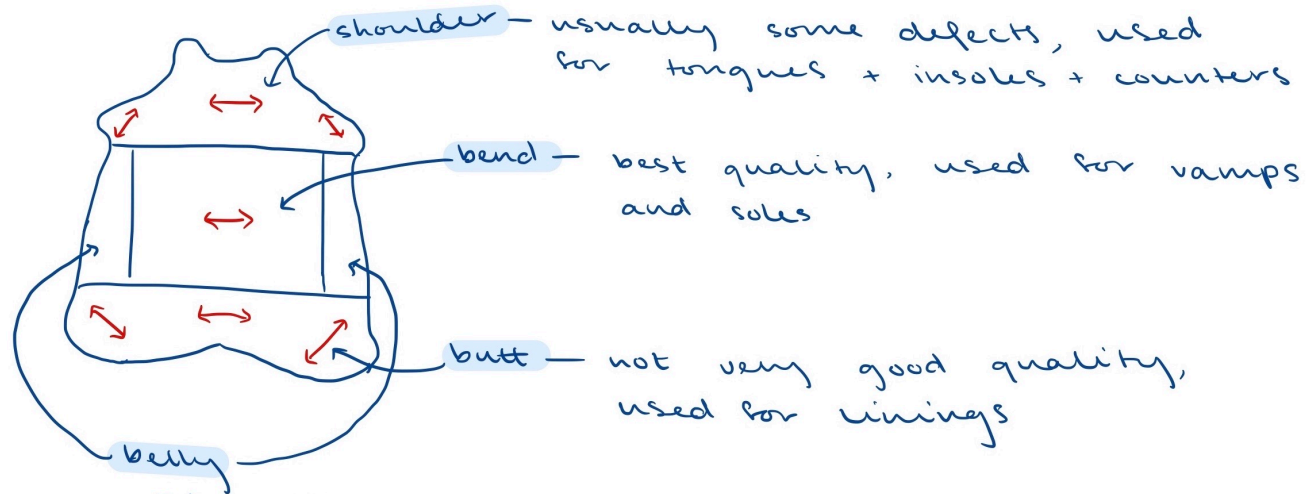 shoulder — usually some defects, used
for tongues + insoles + counters
bend — best quality, used for vamps
and soles
butt — not very good quality,
used for linings
belly